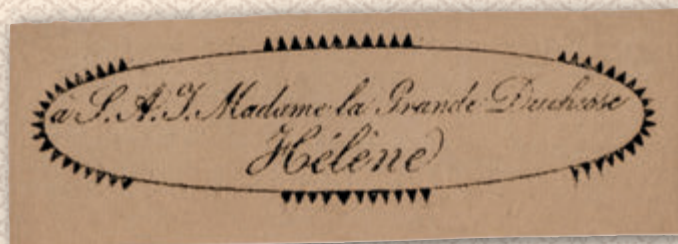 à S. A. I. Madame la Grande Duchesse
Hélène